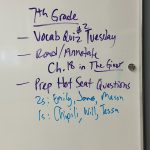 7th Grade
- Vocab Quiz #2 Tuesday
- Read/Annotate
Ch. 18 in The Giver
- Prep Hot Seat Questions
2s: Emily, James, Mason
1s: Will, Tessa